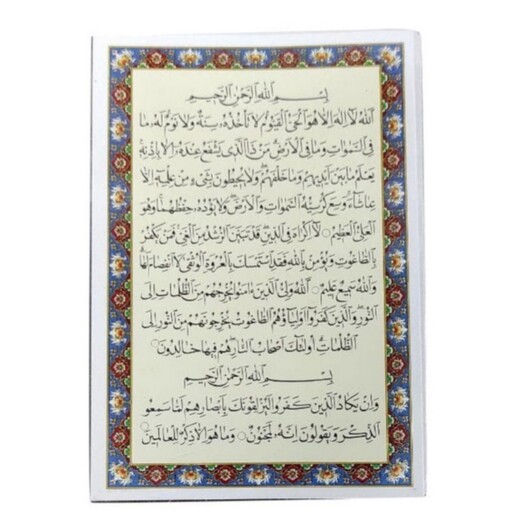 بِسْمِ اللهِ الرَّحْمٰنِ الرَّحِیمِ
اَللهُ لَا اِلٰهَ اِلَّا هُوَ الْحَیُّ الْقَیُّومُ لَا تَأْخُذُهُ سِنَةٌ وَلَا نَوْمٌ لَهُ مَا
فِی السَّمٰوَاتِ وَمَا فِی الْاَرْضِ مَنْ ذَا الَّذِی یَشْفَعُ عِنْدَهُ اِلَّا بِاِذْنِهِ
یَعْلَمُ مَا بَیْنَ اَیْدِیهِمْ وَمَا خَلْفَهُمْ وَلَا یُحِیطُونَ بِشَیْءٍ مِنْ عِلْمِهِ اِلَّا
بِمَا شَاءَ وَسِعَ کُرْسِیُّهُ السَّمٰوَاتِ وَالْاَرْضَ وَلَا یَؤُدُهُ حِفْظُهُمَا وَهُوَ
الْعَلِیُّ الْعَظِیمُ لَا اِکْرَاهَ فِی الدِّینِ قَدْ تَبَیَّنَ الرُّشْدُ مِنَ الْغَیِّ فَمَنْ یَکْفُرْ
بِالطَّاغُوتِ وَیُؤْمِنْ بِاللهِ فَقَدِ اسْتَمْسَكَ بِالْعُرْوَةِ الْوُثْقٰی لَا انْفِصَامَ لَهَا
وَاللهُ سَمِیعٌ عَلِیمٌ اَللهُ وَلِیُّ الَّذِینَ اٰمَنُوا یُخْرِجُهُمْ مِنَ الظُّلُمَاتِ اِلَی
النُّورِ وَالَّذِینَ کَفَرُوا اَوْلِیَاؤُهُمُ الطَّاغُوتُ یُخْرِجُونَهُمْ مِنَ النُّورِ اِلَی
الظُّلُمَاتِ اُولٰئِكَ اَصْحَابُ النَّارِ هُمْ فِیهَا خَالِدُونَ
بِسْمِ اللهِ الرَّحْمٰنِ الرَّحِیمِ
وَاِنْ یَکَادُ الَّذِینَ کَفَرُوا لَیُزْلِقُونَكَ بِاَبْصَارِهِمْ لَمَّا سَمِعُوا
الذِّکْرَ وَیَقُولُونَ اِنَّهُ لَمَجْنُونٌ وَمَا هُوَ اِلَّا ذِکْرٌ لِلْعَالَمِینَ